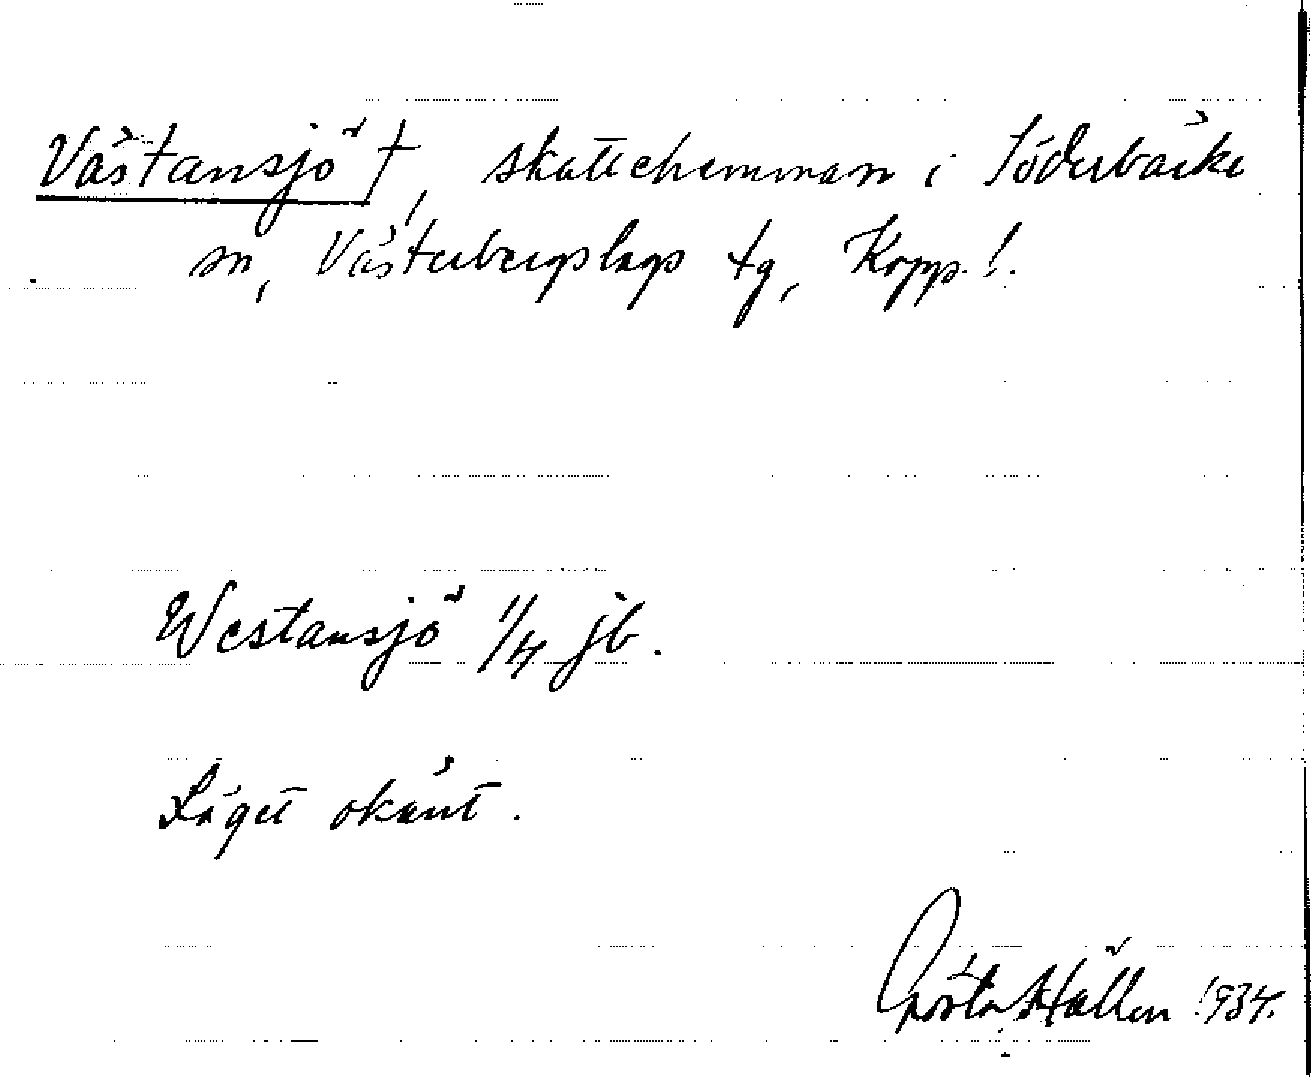 Västansjö †, skattehemman i Söderbärke
sn, Västerbergslags tg, Kopp. l.
Westansjö 1/4 jb.
Läget okänt.
Gösta Hällen 1934.